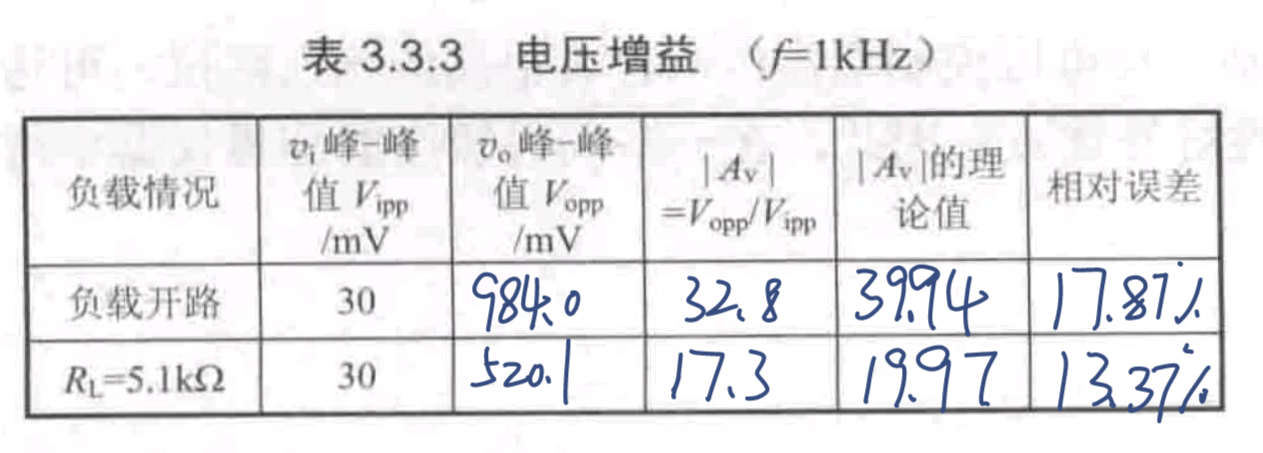 表 3.3.3 电压增益 （f=1kHz）
负载情况 vi 峰-峰值 Vipp/mV vo 峰-峰值 Vopp/mV |Av|=Vopp/Vipp |Av|的理论值 相对误差
负载开路 30 984.0 32.8 39.94 17.87%
RL=5.1kΩ 30 520.1 17.3 19.97 13.37%